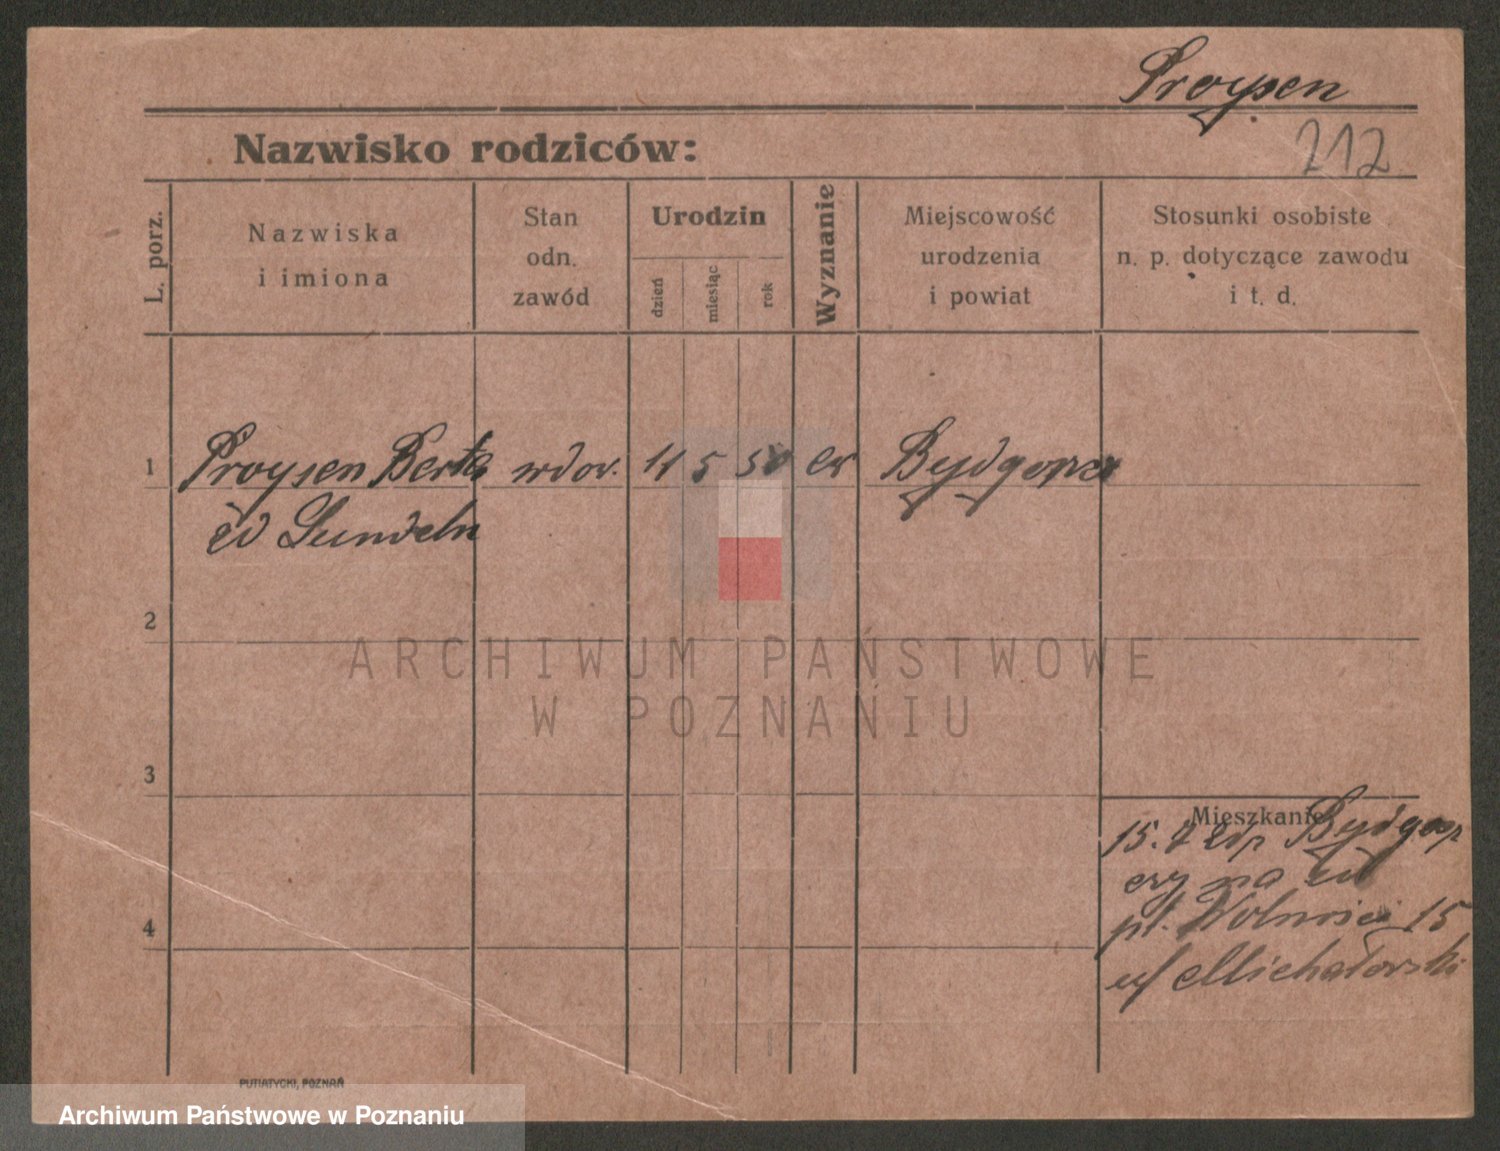 Proysen
212
Nazwisko rodziców:
L. porz.
Nazwiska
i imiona
Stan
odn.
zawód
Urodzin
dzień
miesiąc
rok
Wyznanie
Miejscowość
urodzenia
i powiat
Stosunki osobiste
n. p. dotyczące zawodu
i t. d.
1 Proysen Berta wdow. 11 5 50 ew Bydgoszcz
2
3
4
Mieszkanie
15. 7 Bydgosz
czy na
pl. Wolności 15
Michałowski
PUTIATYCKI, POZNAŃ
ARCHIWUM PAŃSTWOWE
W POZNANIU
Archiwum Państwowe w Poznaniu